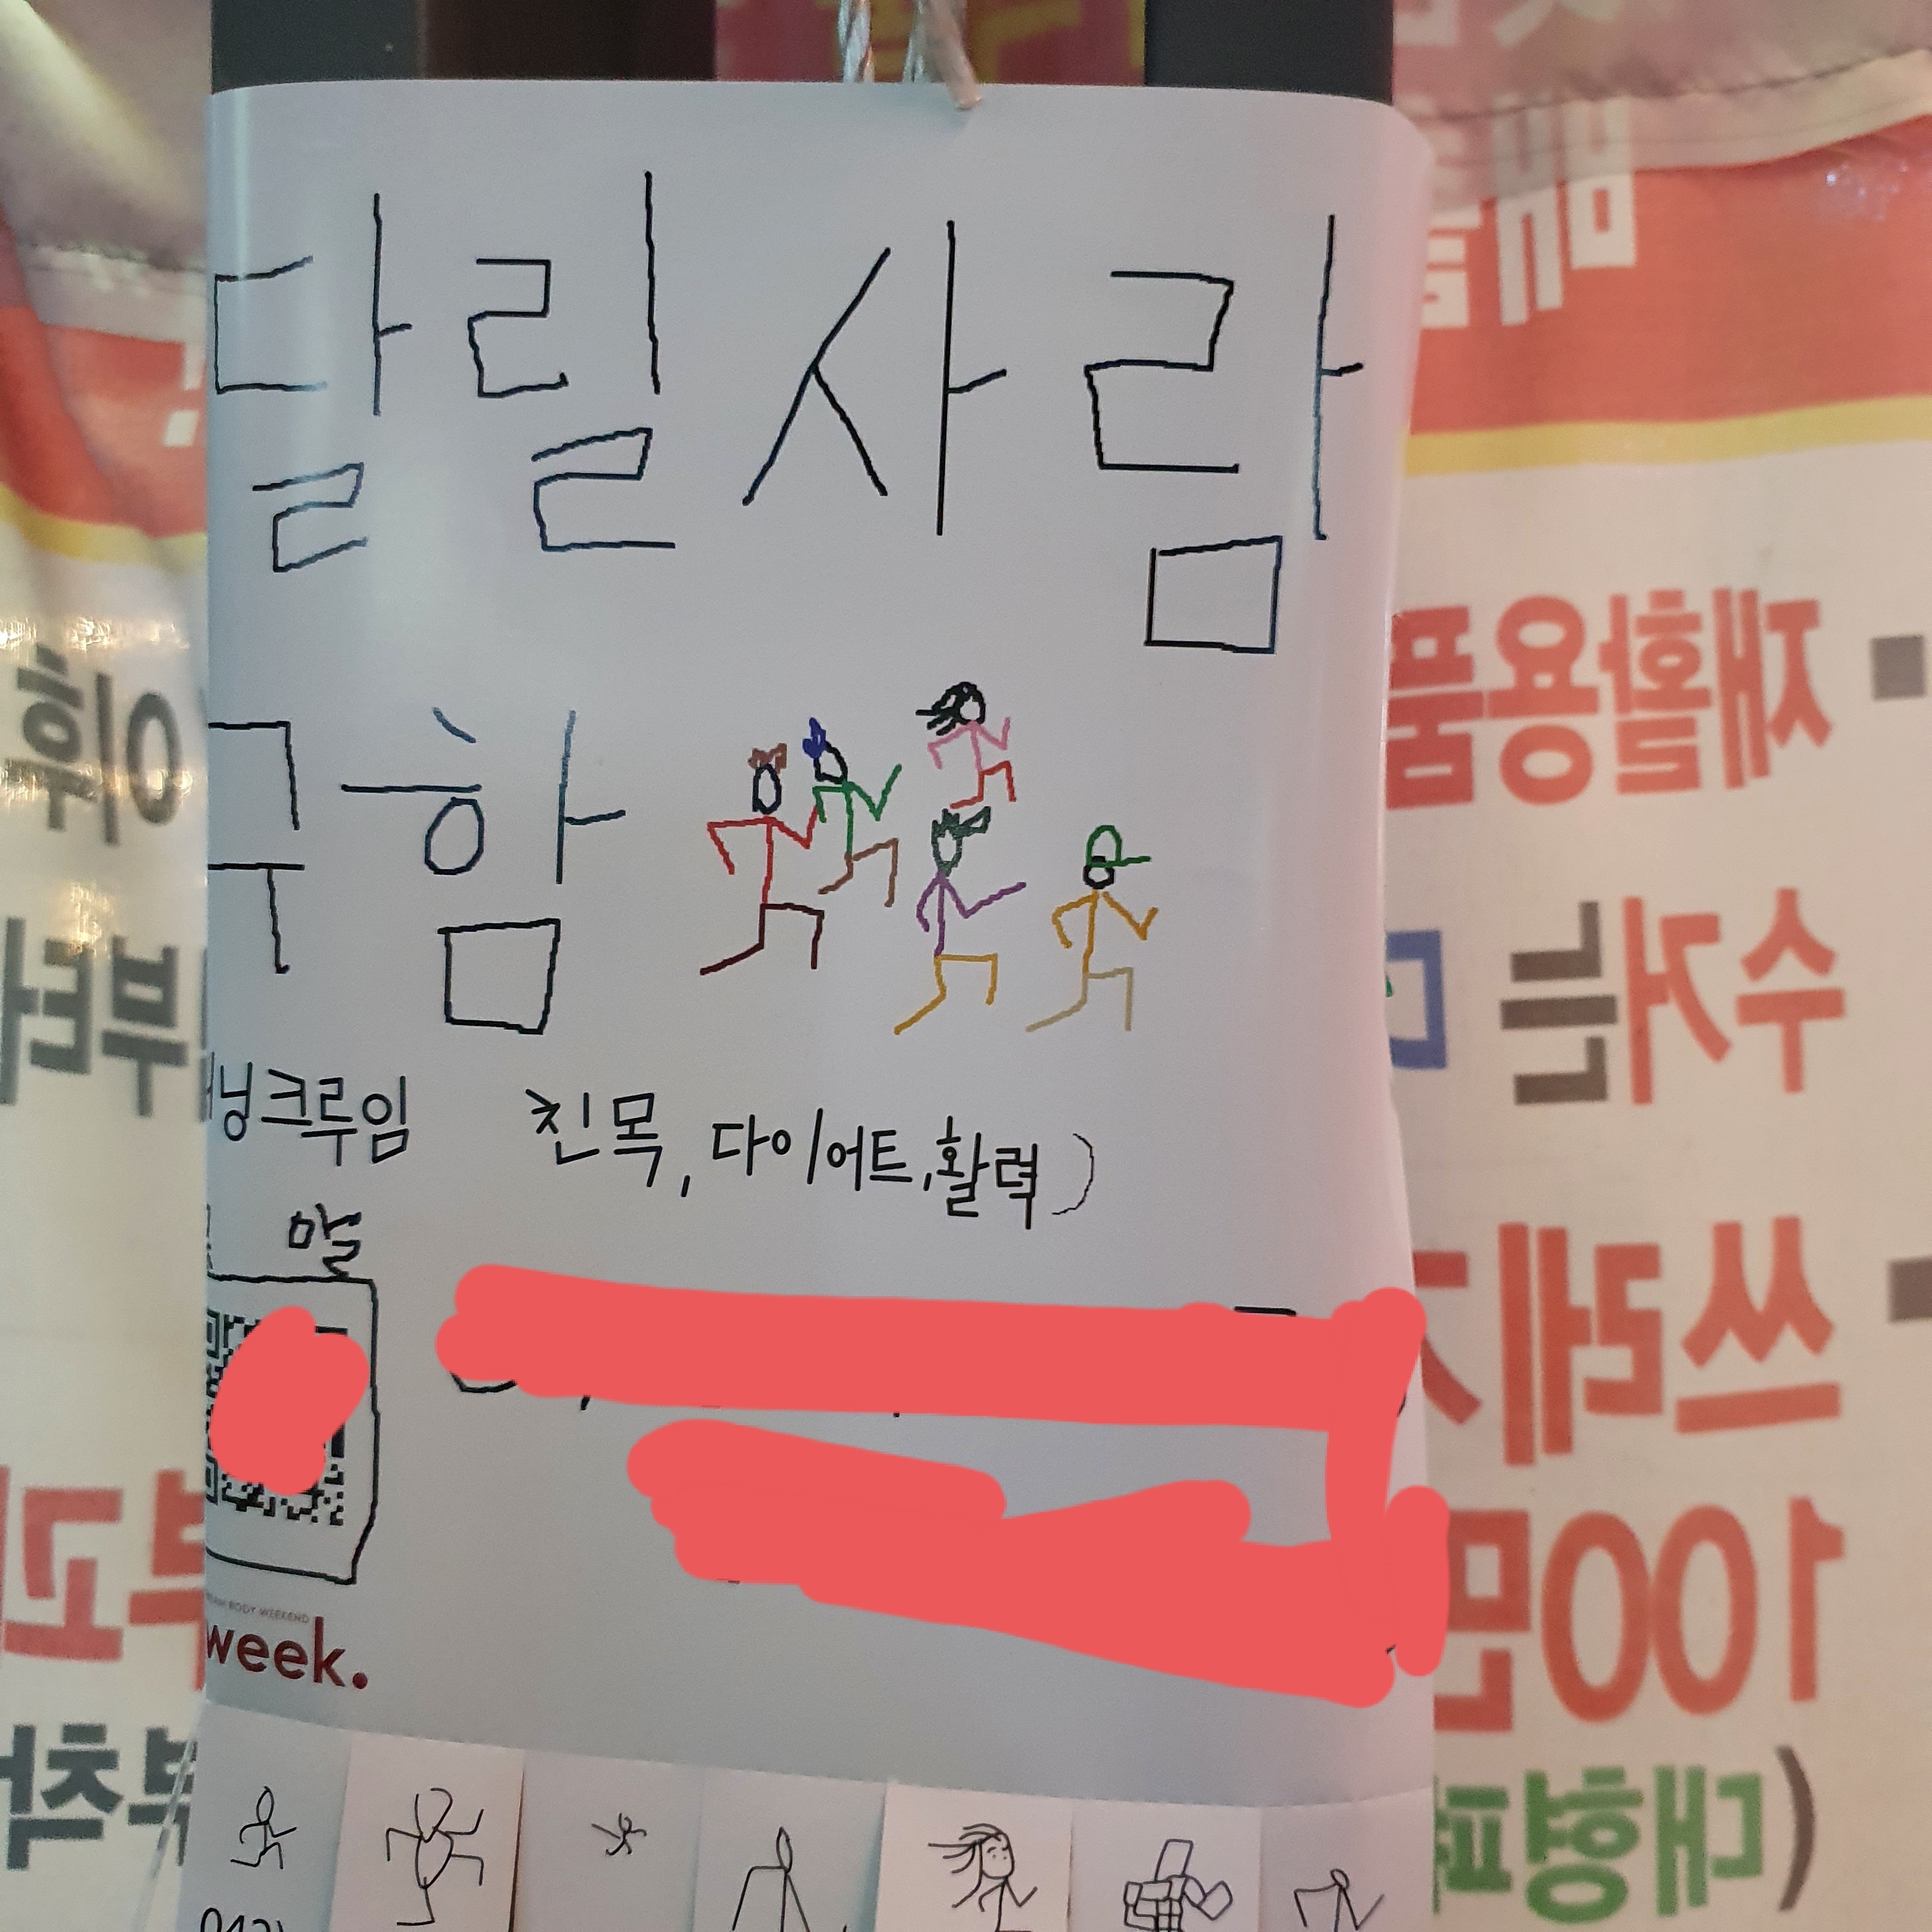 달릴사람
구함
닝크루임 친목, 다이어트, 활력)
말
BODY WEEKEND
week.
재활용품
수거는
쓰레기
100만
(대형폐
이후
부터